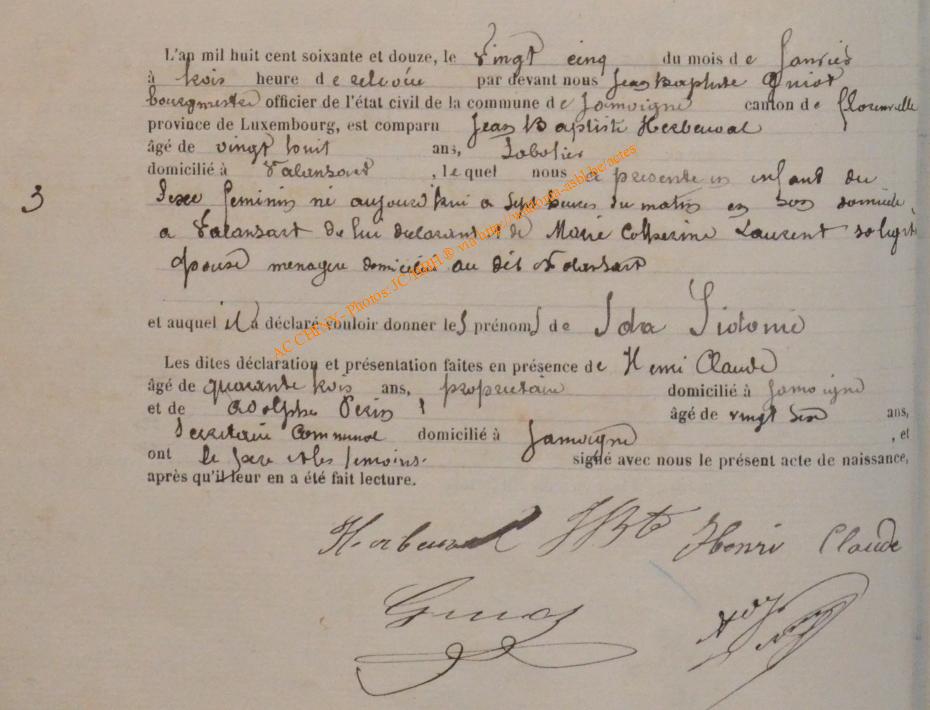 L'an mil huit cent soixante et douze, le Vingt cinq du mois de Janvier
à trois heure de relevée par devant nous Jean Baptiste Guiot
bourgmestre officier de l'état civil de la commune de Jamoigne canton de florenville
province de Luxembourg, est comparu Jean Baptiste Herbeuval
âgé de vingt huit ans, Sabotier
domicilié à Valansart, lequel nous a presenté un enfant du
3
Sexe feminin né aujourd'hui a Sept heures du matin en Son domicile,
a Valansart de lui declarant et de Marie Catherine Laurent
Epouse menagere domiciliée au dit Valansart
et auquel il a déclaré vouloir donner les prénoms de Ida Sidonie
Les dites déclaration et présentation faites en présence de Henri Claude
âgé de quarante trois ans, proprietaire domicilié à Jamoigne
et de Adolphe Perin âgé de vingt Six ans,
Secretaire Communal domicilié à Jamoigne, et
ont le pere et les temoins signé avec nous le présent acte de naissance,
après qu'il leur en a été fait lecture.
Herbeuval JBte Henri Claude
Guiot
AC CHINY - Photos: JC